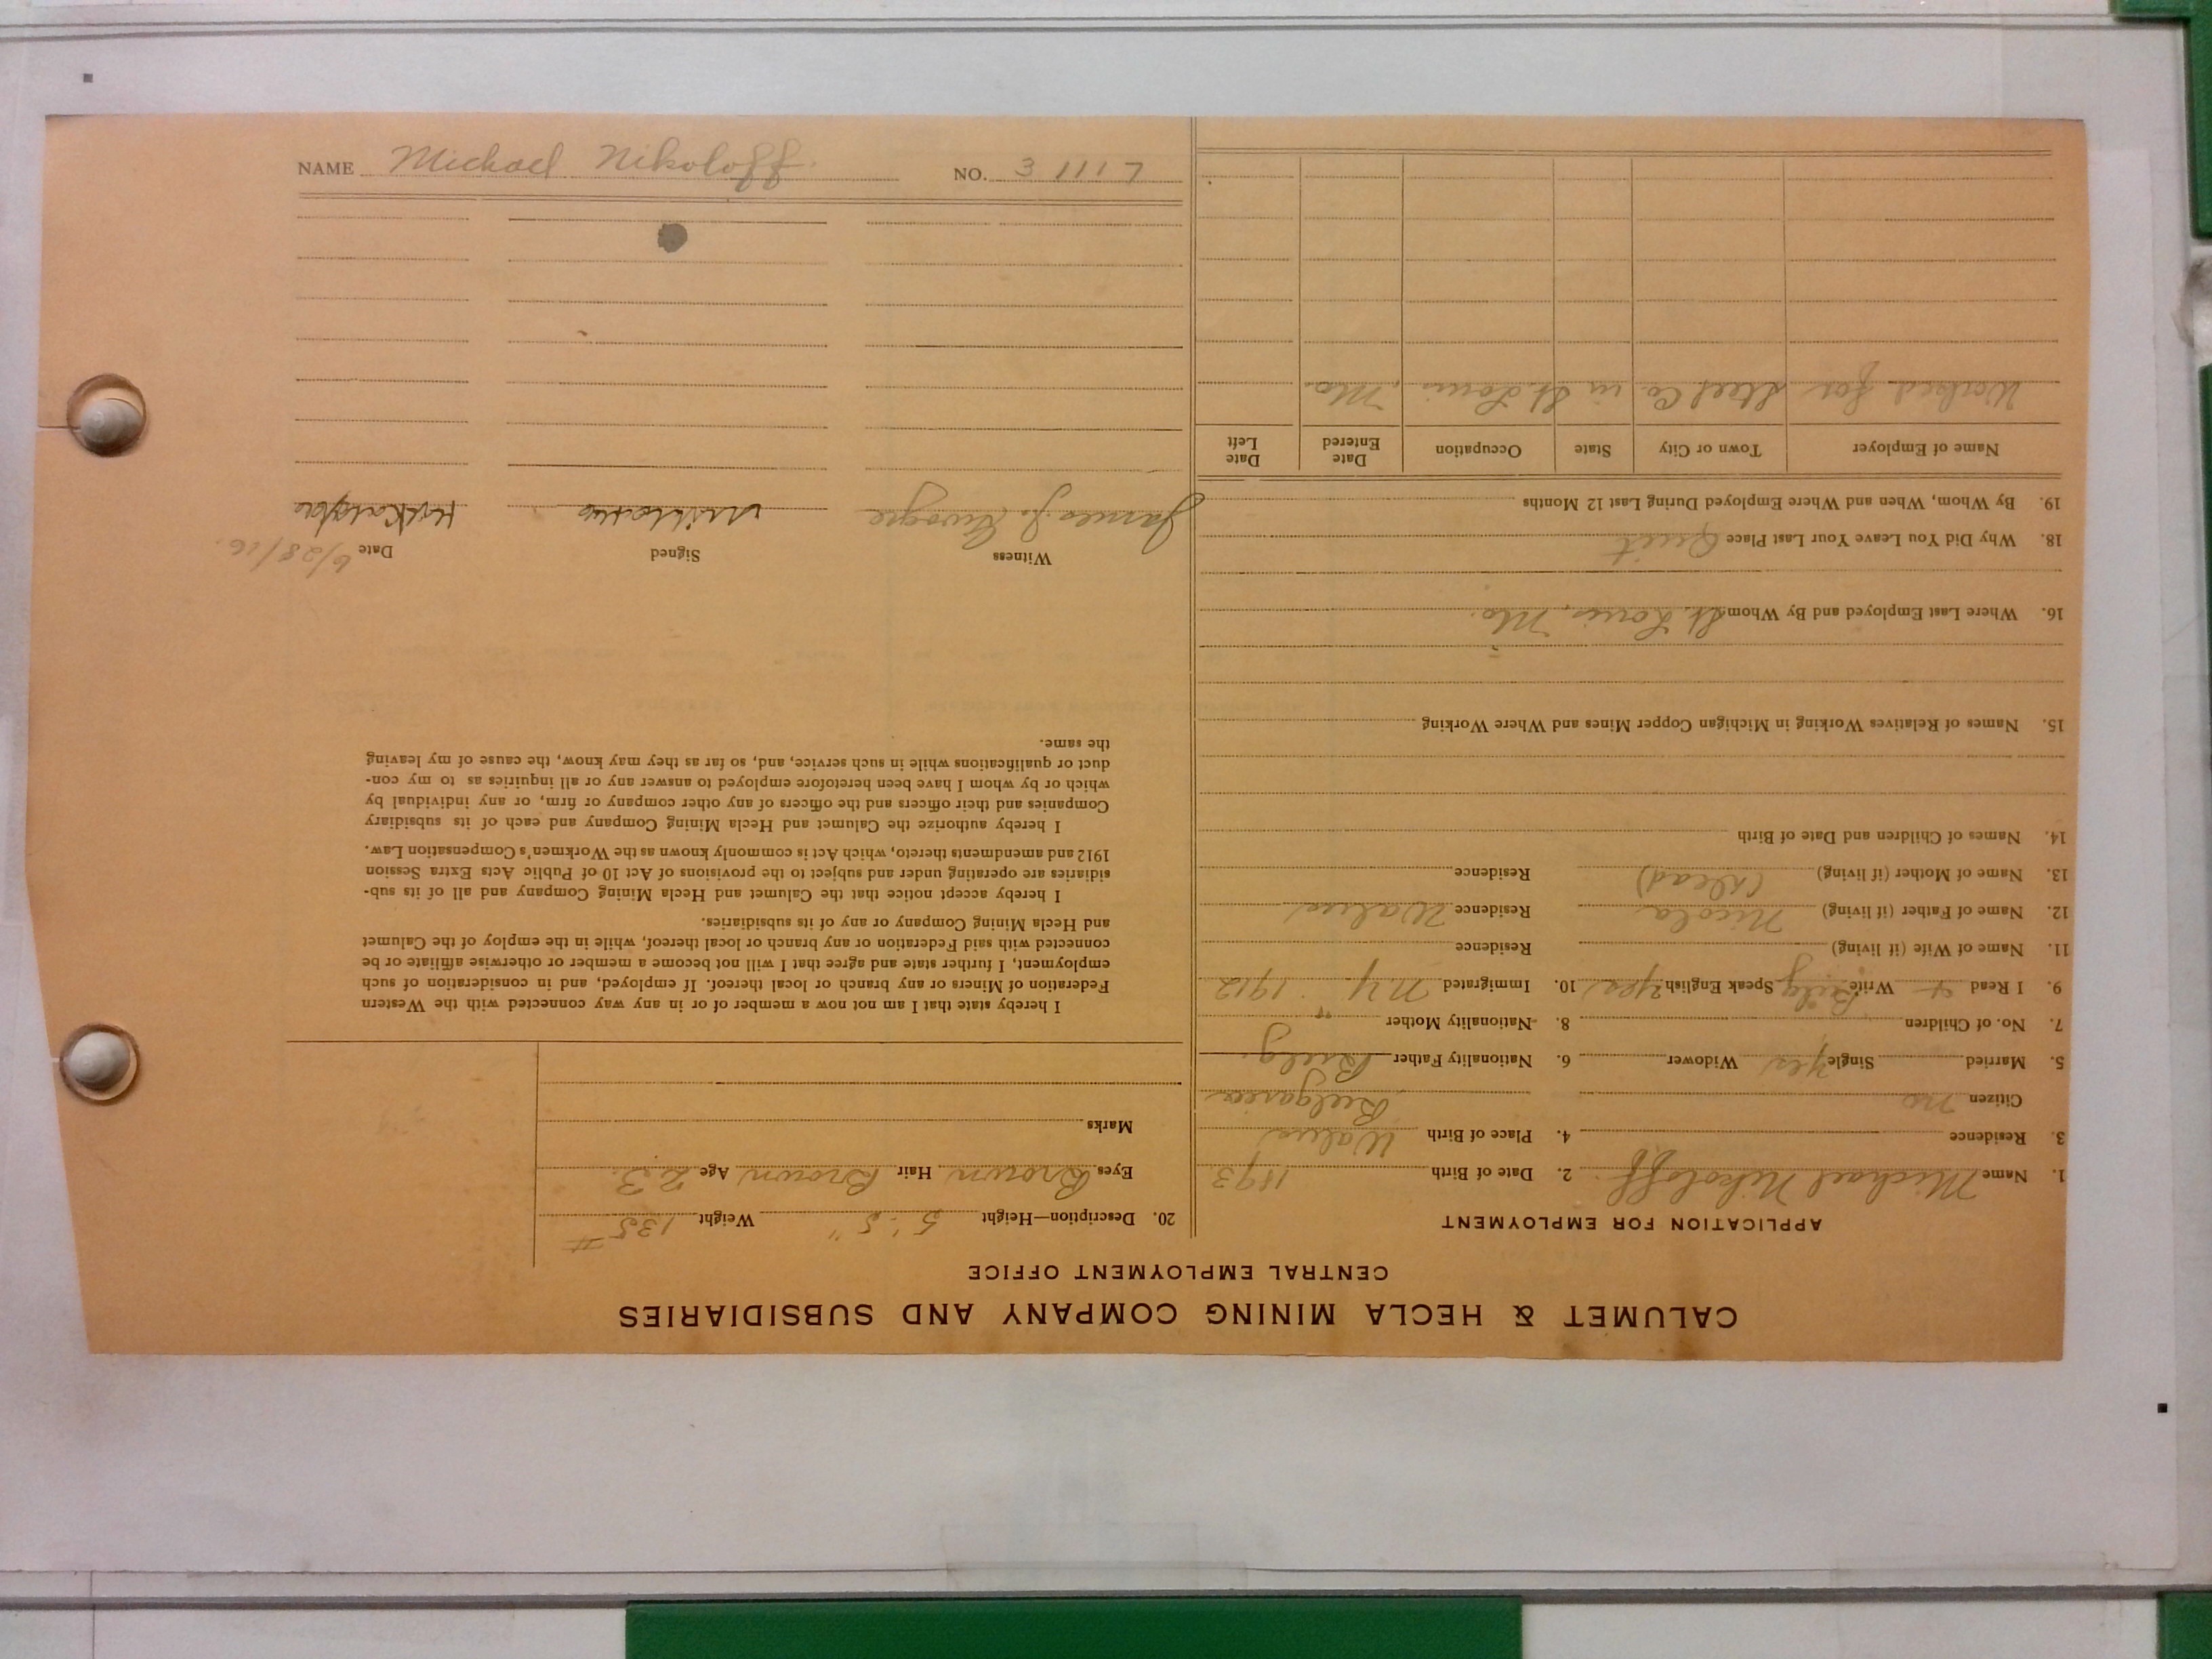 CALUMET & HECLA MINING COMPANY AND SUBSIDIARIES
CENTRAL EMPLOYMENT OFFICE
APPLICATION FOR EMPLOYMENT
1. Name Michael Nikoloff 2. Date of Birth 1893
3. Residence 4. Place of Birth
Citizen no Bulgaria
5. Married Single yes Widower 6. Nationality Father Bulg.
7. No. of Children 8. Nationality Mother "
9. I Read + Write Bulg Speak English? yes 10. Immigrated 1912
11. Name of Wife (if living) Residence
12. Name of Father (if living) Nicola Residence
13. Name of Mother (if living) (dead) Residence
14. Names of Children and Date of Birth
15. Names of Relatives Working in Michigan Copper Mines and Where Working
16. Where Last Employed and By Whom St. Louis, Mo.
18. Why Did You Leave Your Last Place Quit
19. By Whom, When and Where Employed During Last 12 Months
Name of Employer Town or City State Occupation Date Entered Date Left
Worked for Steel Co in St. Louis, Mo.
20. Description—Height 5' 5" Weight 135 #
Eyes Brown Hair Brown Age 23
Marks
I hereby state that I am not now a member of or in any way connected with the Western
Federation of Miners or any branch or local thereof. If employed, and in consideration of such
employment, I further state and agree that I will not become a member or otherwise affiliate or be
connected with said Federation or any branch or local thereof, while in the employ of the Calumet
and Hecla Mining Company or any of its subsidiaries.
I hereby accept notice that the Calumet and Hecla Mining Company and all of its sub-
sidiaries are operating under and subject to the provisions of Act 10 of Public Acts Extra Session
1912 and amendments thereto, which Act is commonly known as the Workmen's Compensation Law.
I hereby authorize the Calumet and Hecla Mining Company and each of its subsidiary
Companies and their officers and the officers of any other company or firm, or any individual by
which or by whom I have been heretofore employed to answer any or all inquiries as to my con-
duct or qualifications while in such service, and, so far as they may know, the cause of my leaving
the same.
Witness Signed Date 6/28/16.
James J.
NAME Michael Nikoloff. NO. 3 1117